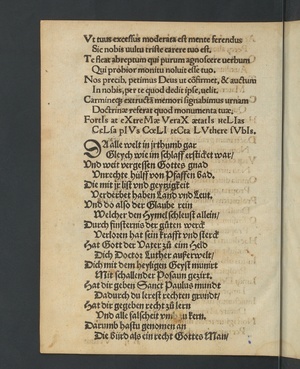 Ut tuus excessus moderata est mente ferendus
Sic nobis vultu triste carere tuo est.
Te fleat abreptum qui purum agnoscere verbum
Qui probior monitu noluit esse tuo.
Nos precib, petimus Deus ut cōfirmet, & auctum
In nobis, per te quod dedit ipse, velit.
Carmineq; extructa memori signabimus urnam
Doctrinæ referat quod monumenta tuæ.
FortIs at eXtreMæ VeraX ætatIs HeLIas
CeLsa pIVs CœLI teCta LVthere sVbIs.
DA alle welt in jrthumb gar
Gleych wie im schlaff ersticket war/
Vnd weit vergessen Gottes gnad
Vnrechte hülff von Pfaffen bad,
Die mit jr list vnd geyttzigkeit
Verderbet haben Land vnd Leut,
Vnd do also der Glaube rein
Welcher den Hymel schleust allein/
Durch finsternis der güten werck
Verloren hat sein krafft vnd sterck
Hat Gott der Vater zü eim Held
Dich Doctor Luther außerwelt/
Dich mit dem heyligen Geyst munirt
Mit schallender Posaun gezirt,
Hat dir geben Sanct Paulus mundt
Dadurch du lerest rechten grundt/
Hat dir gegeben recht zü lern
Vnd alle falscheit kern,
Darumb hastu genomen an
Die bürd als ein recht Gottes Man/